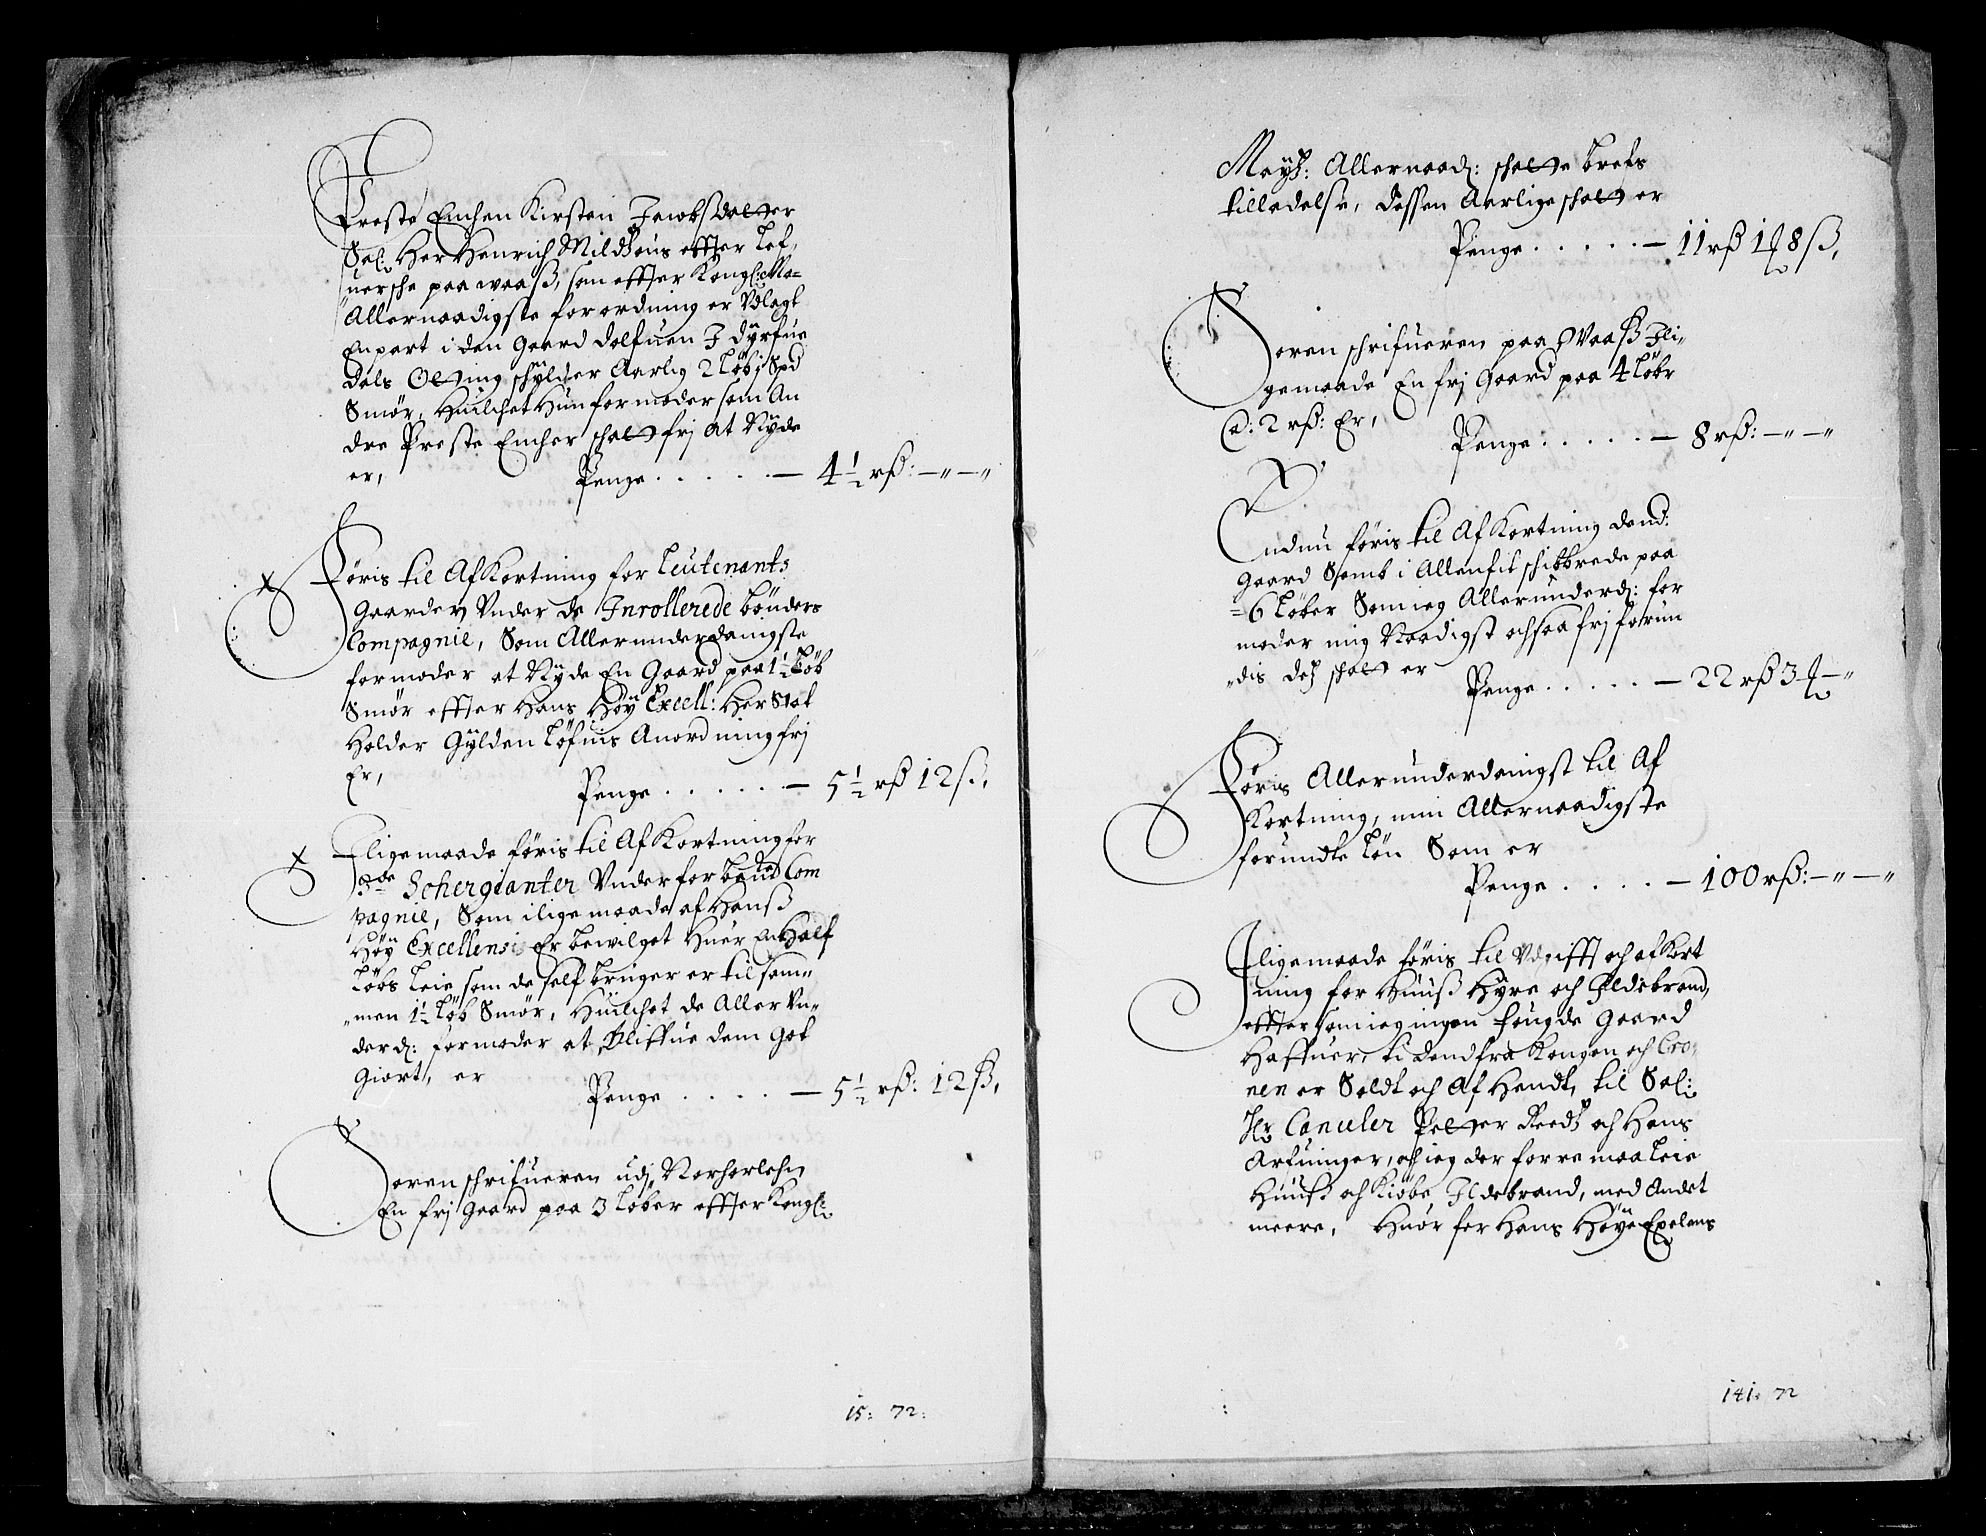 Preste Enchen Kirsten Jacobsdatter
Sal: Her Henrich Miltzous effter Lef„
uersche paa waaß, som effter Kongl: Ma=
Allernaadigste forordning er Vdlagt
En part i den Gaard dolfuen J dyrfue
dals Otting schylder Aarlig 2 Løb 1 Spd
Smør, Huilchet Hun formoder som An
dre Preste Encher schatt frj at Nyde
er, Penge . . . . . — 4½ rß: —„ —„
Føris til AfKortning for Leutenants
Gaarder Vnder de Inrollerede bønders
Compagnie, Som Allerunderdanigste
formoder at Nyde En Gaard paa 1½ Løb
Smør effter Hans Høy Excell: Her Stat
Holder Gylden Løfuis Anordning frj
Er, Penge . . . . . — 5½ rß 12 ß,
Iligemaade føris til AfKortning for
3de Schergianter Vnder forbemte Com
pagnie, Som iligemaade af Hanß
Høy Excellensi Er bewilget Huer En Half
Løbs Leie som de self bruger er til sam„
„men 1½ Løb Smør, Huilchet de Aller Vn„
derd: formoder at bliffue dem Got
Giort, er Penge . . . . — 5½ rß: 12 ß,
Soren schrifueren udj Norhorlehn,
En frj Gaard paa 3 Løber effter Kongl:
15: 72:
Mayß: Allernaad: schatte brefs
tilladelse, dessen Aarlige schatt er
Penge . . . . . — 11 rß 1 ʃ 8 ß,
Soren schrifueren paa Waaß Ili„
gemaade En frj Gaard paa 4 Løbr
Ca: 2 rß: Er, Penge . . . . . — 8 rß: —„ —„
Endnu føris til AfKortning dend
Gaard Somb i Allenfit schibbrede paa
=6 Løber Som ieg Allerunderd: for
moder mig Naadigst ochsaa frj forun
„dis deß schatt er Penge . . . . . — 22 rß 3 ʃ —„
Føris Allerunderdanigst til Af
Kortning, min Allernaadigste
forundte Løn Som er
Penge . . . . — 100 rß: —„ —„
Iligemaade føris til Vdgifft och afKort
ning for Huuß Hyre och Ildebrand,
effter som ieg ingen fougde Gaard
Haffuer, ti dend fra Kongen och Cro„
nen er Soldt och AfHendt, til Sal:
Hr Canceler Petter Reedtz och Hans
Arfuinger, och ieg der forre maa Leie
Huuß och Kiøbe Ildebrand, med Andet
meere, Huor for Hans Høye Exelens
141: 72